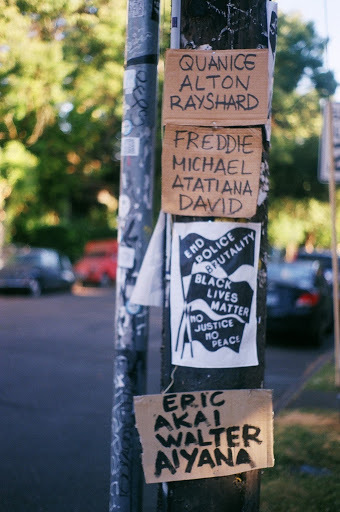 QUANICE
ALTON
RAYSHARD
FREDDIE
MICHAEL
ATATIANA
DAVID
END
POLICE
BRUTALITY
BLACK LIVES
MATTER
NO JUSTICE
NO
PEACE
ERIC
AKAI
WALTER
AIYANA